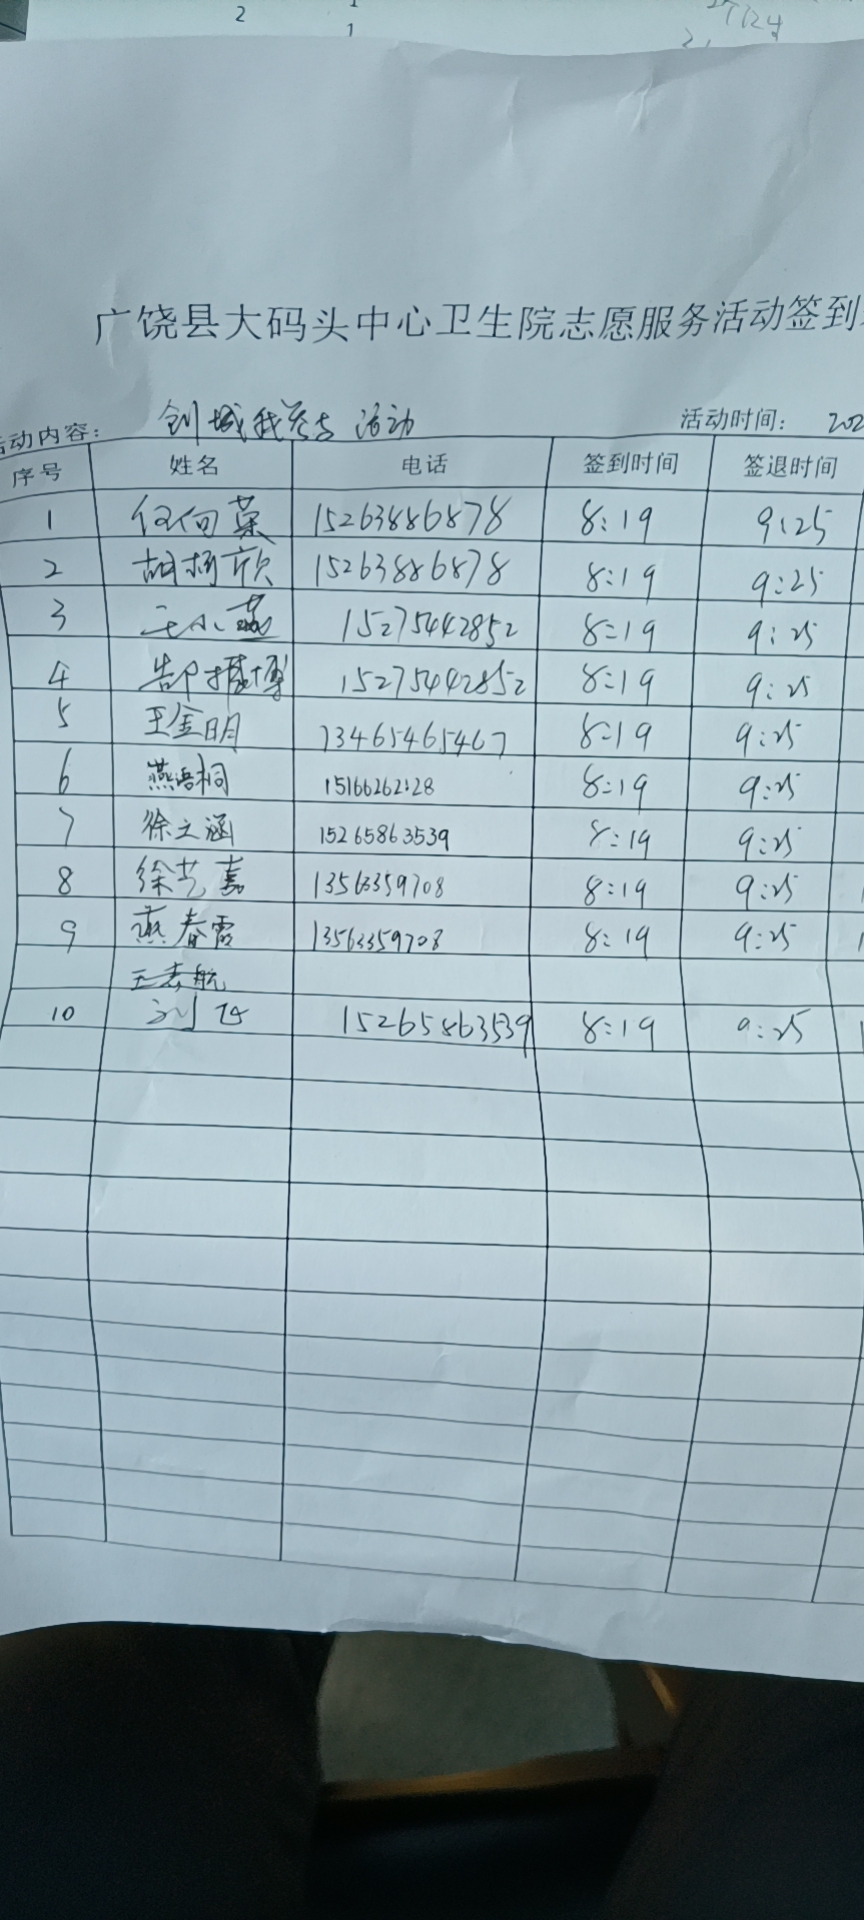 2
1
1
广饶县大码头中心卫生院志愿服务活动签到
活动内容: 创城我参与 活动 活动时间: 202
序号 姓名 电话 签到时间 签退时间
1 任向菜 15263886878 8:19 9:25
2 胡杨欣 15263886878 8:19 9:25
3 王小燕 15275442852 8:19 9:25
4 15275442852 8:19 9:25
5 王金明 13465465467 8:19 9:25
6 燕语桐 15166262128 8:19 9:25
7 徐立涵 15265863539 8:19 9:25
8 徐艺嘉 13563359708 8:19 9:25
9 燕春霞 13563359708 8:19 9:25
10 15265863539 8:19 9:25